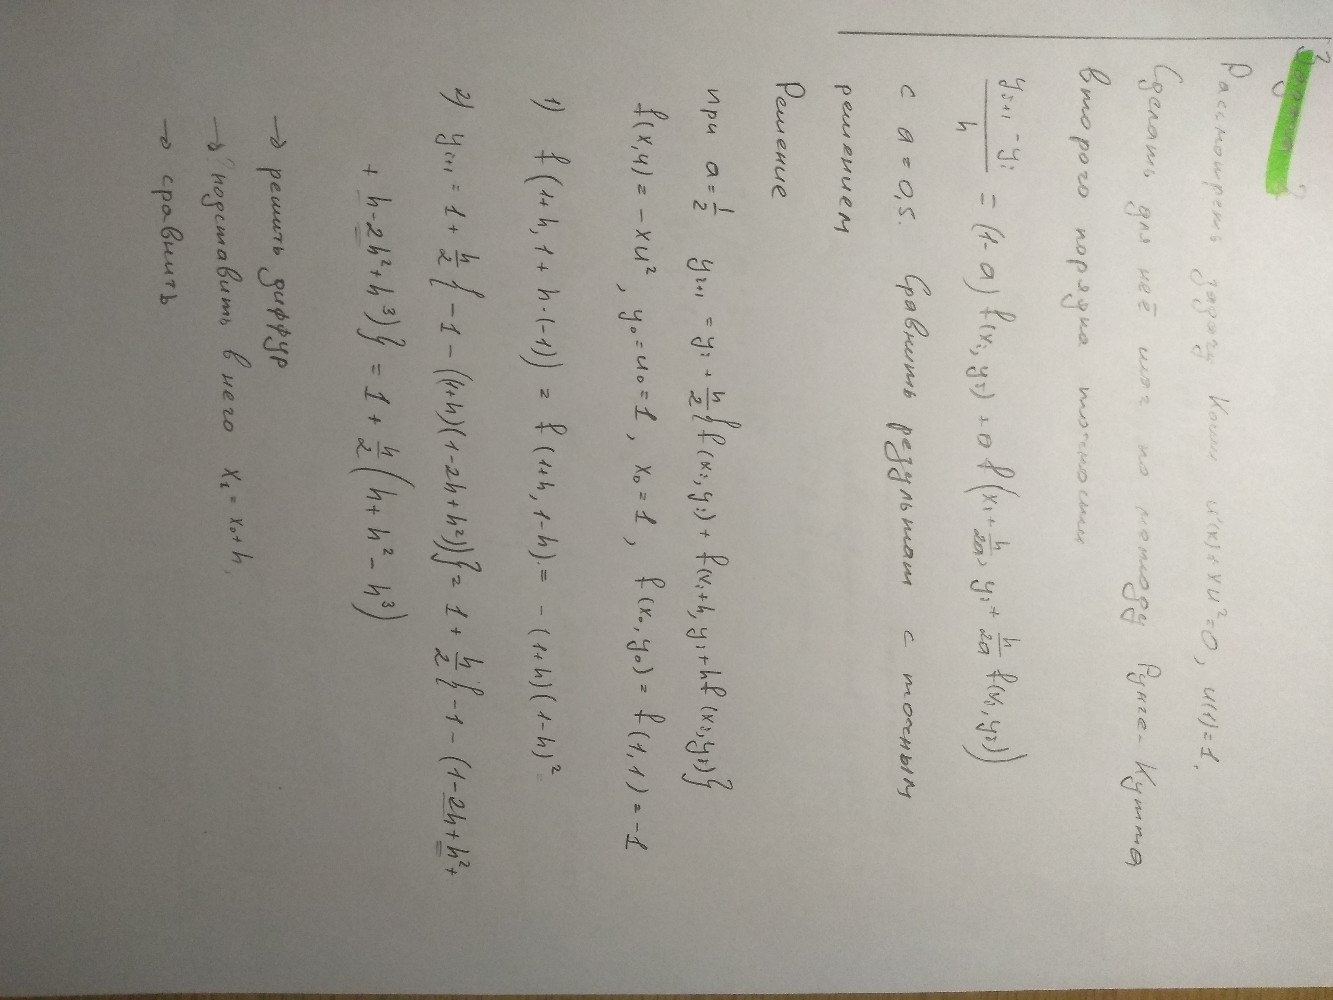 Задача 2
Рассмотреть задачу Коши u'(x)+xu²=0, u(1)=1.
Сделать для неё шаг по методу Рунге-Кутта
второго порядка точности
(yᵢ₊₁ - yᵢ)/h = (1-a) f(xᵢ, yᵢ) + a f(xᵢ + h/2a, yᵢ + h/2a f(xᵢ, yᵢ))
с a = 0,5. Сравнить результат с точным
решением
Решение
при a = 1/2 yᵢ₊₁ = yᵢ + h/2 {f(xᵢ, yᵢ) + f(xᵢ+h, yᵢ+hf(xᵢ, yᵢ)}
f(x,y) = -xu², y₀=u₀=1, x₀=1, f(x₀,y₀) = f(1,1) = -1
1) f(1+h, 1+h·(-1)) = f(1+h, 1-h) = -(1+h)(1-h)² =
2) yᵢ₊₁ = 1 + h/2 {-1 - ((1+h)(1-2h+h²))} = 1 + h/2 {-1 - (1-2h+h²+
+ h-2h²+h³)} = 1 + h/2 (h+h²-h³)
→ решить диффур
→ подставить в него x₁ = x₀+h,
→ сравнить